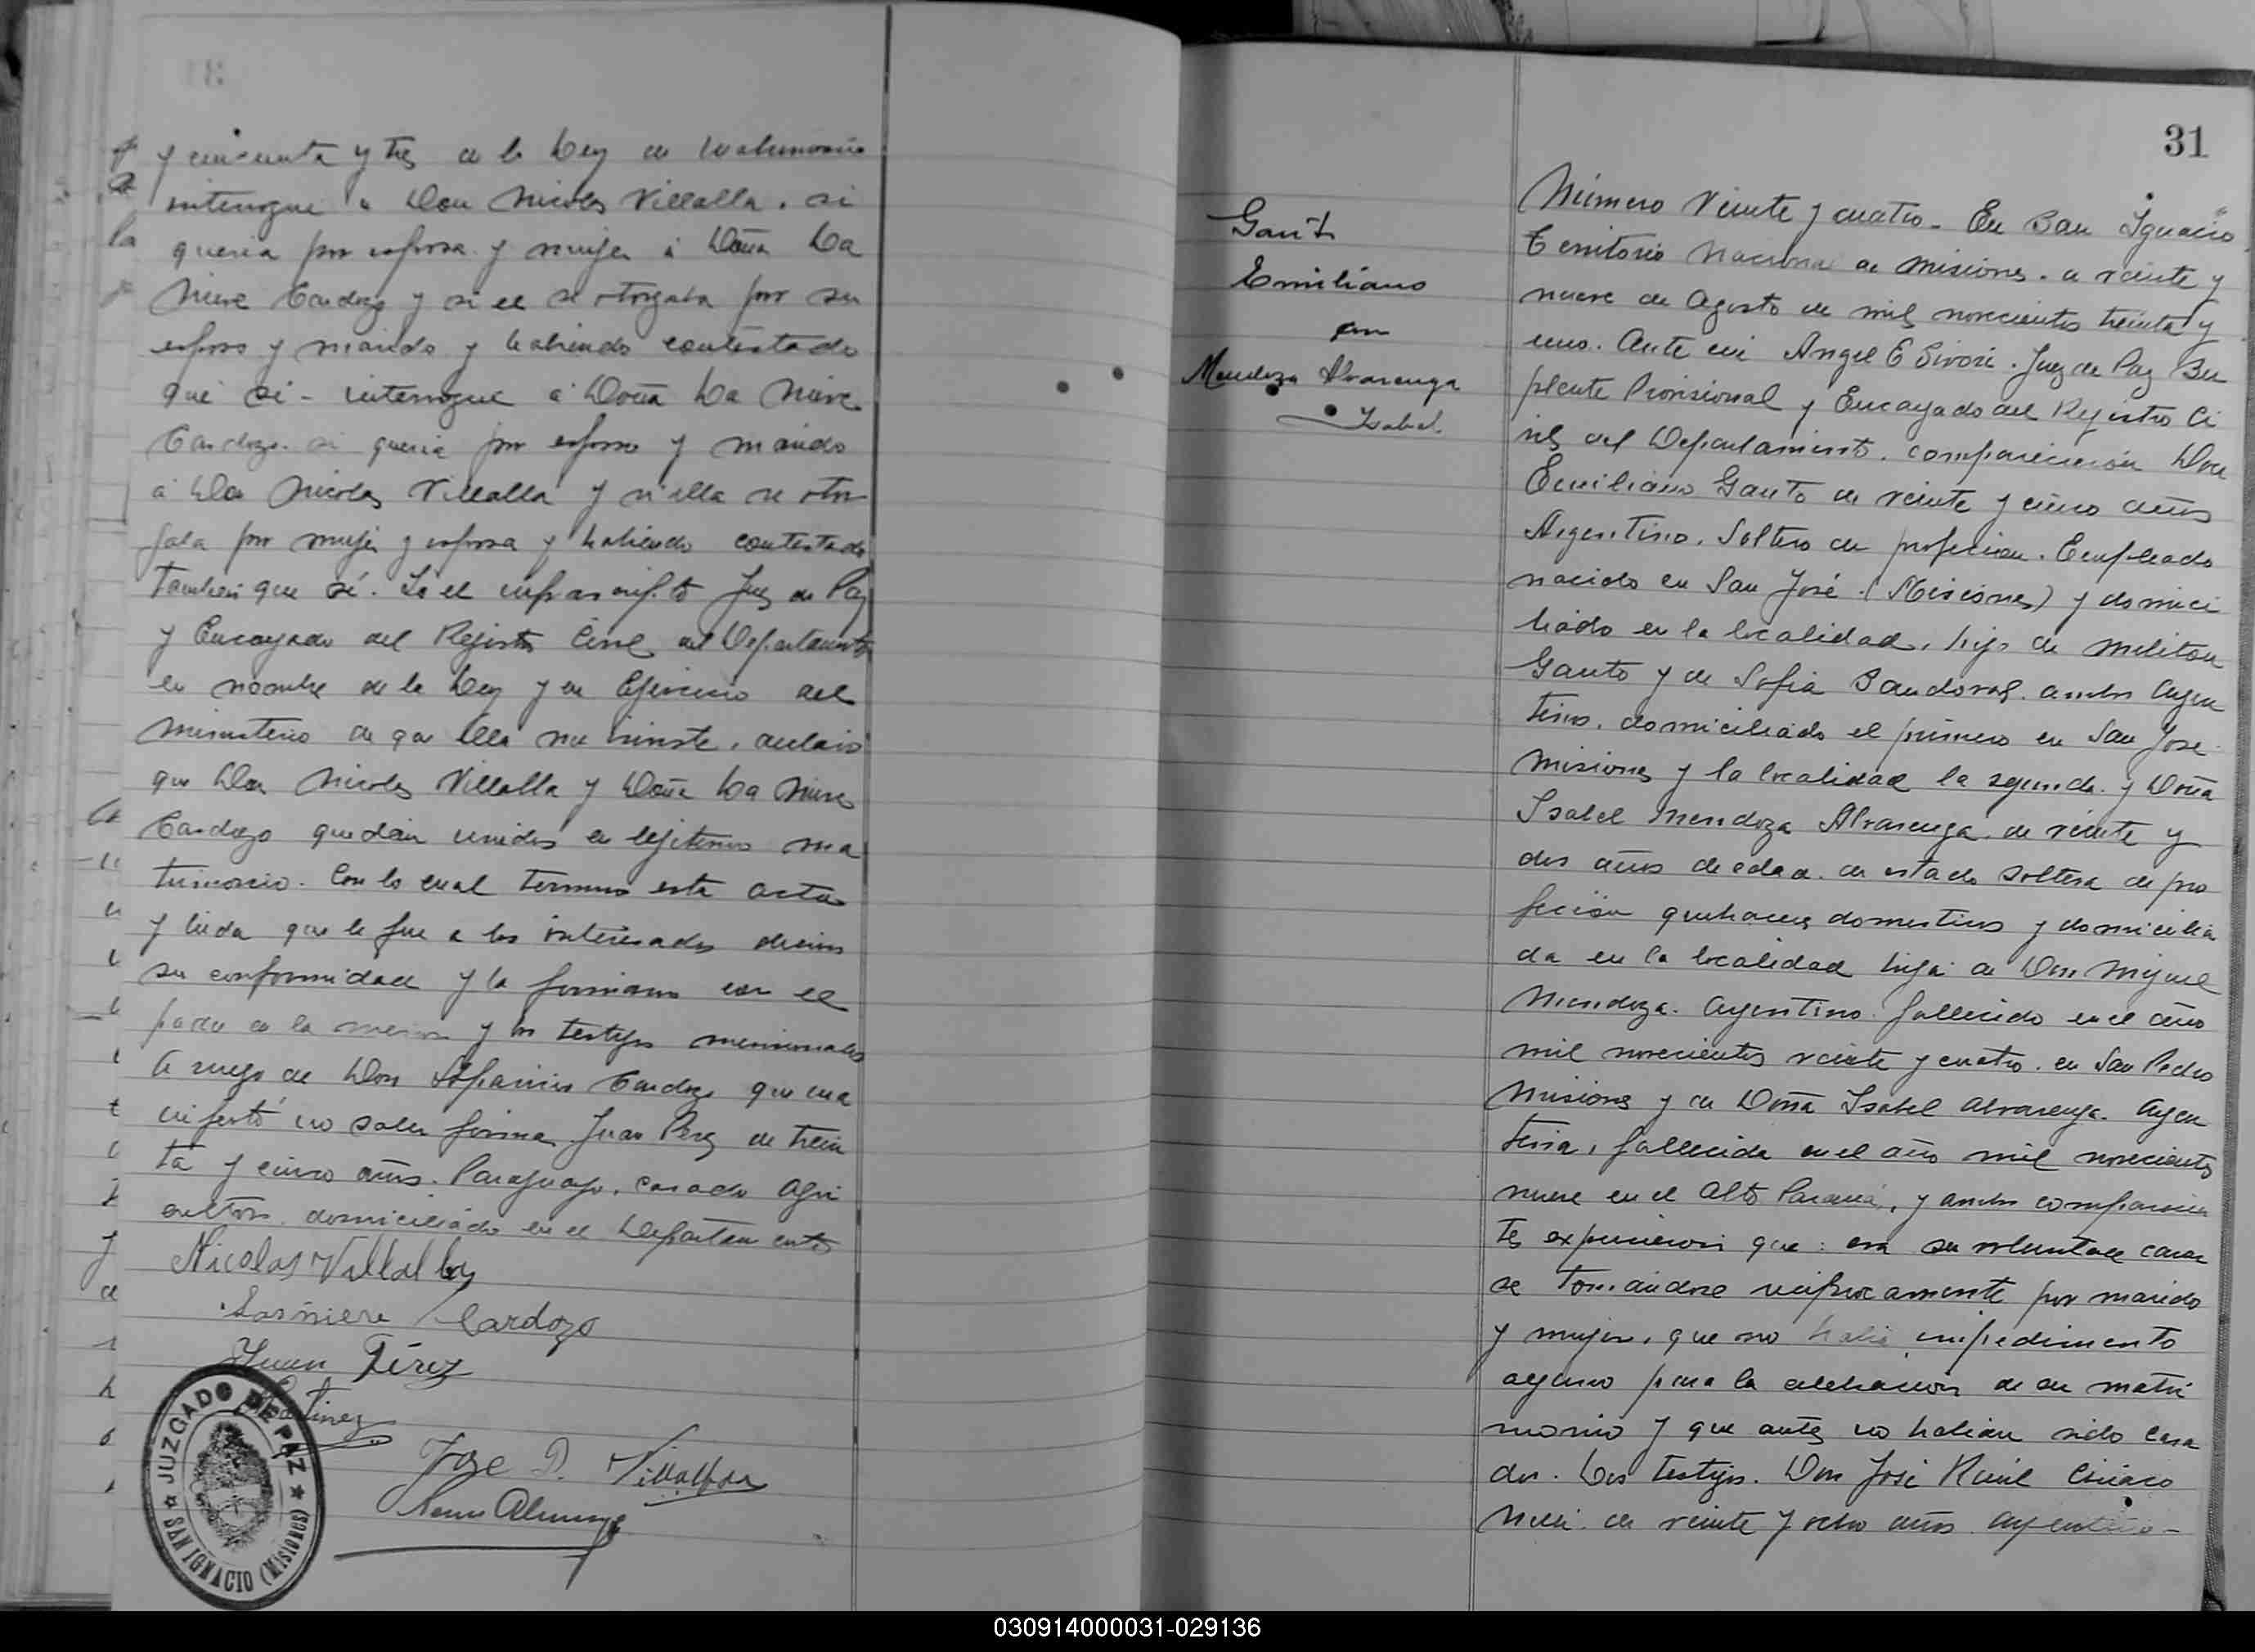 y cincuenta y tres de la Ley de Matrimonio
interrogue a Don Nicolas Villalba. si
queria por esposa y mujer á Doña La
Nieve Cardozo y si el se otorgaba por su
esposo y marido y habiendo contestado
que si - interrogue á Doña La Nieve
Cardozo. si queria por esposo y marido
á Don Nicolas Villalba y si ella se otor
gaba por mujer y esposa y habiendo contestado
tambien que sí. Yo el infrascripto Juez de Paz
y Encargado del Registro Civil del Departamento
en nombre de la Ley y en Ejercicio del
Ministerio de que Ella me inviste, declaro
que Don Nicolas Villalba y Doña La Nieve
Cardozo quedán unidos en lejitimo ma
trimonio. Con lo cual termino esta acta
y leida que le fue a los interesados dieron
su conformidad y la firmaron con el
padre de la menor y los testigos mencionados
A ruego de Don Cardozo que ma
nifestó no saber firmar Juan Perez de trein
ta y cinco años. Paraguayo. casado Agri
cultor. domiciliado en el Departamento
Nicolas Villalba
Lasniere Cardozo
Juan Pérez
Martinez
Jose D. Villalba
JUZGADO DE PAZ
SAN IGNACIO (MISIONES)
31
Gaut
Emiliano
con
Mendoza Alvarenga
Isabel
Número Veinte y cuatro - En San Ignacio
Territorio Nacional de Misiones. a veinte y
nueve de Agosto de mil novecientos treinta y
uno. Ante mi Angel E Sivori. Juez de Paz Su
plente Provisional y Encargado del Registro Ci
vil del Departamento. comparecieron Don
Emiliano Gauto de veinte y cinco años
Argentino. Soltero de profecion. Empleado
nacido en San José (Misiones) y domici
liado en la localidad, hijo de Meliton
Gauto y de Sofia Sandoval. ambos Argen
tinos. domiciliado el primero en San Jose
Misiones y la localidad la segunda. y Doña
Isabel Mendoza Alvarenga. de veinte y
dos años de edad. de estado soltera de pro
fecion quehaceres domesticos y domicilia
da en la localidad hija de Don Miguel
Mendoza. Argentino. fallecido en el año
mil novecientos veinte y cuatro. en San Pedro
Misiones y de Doña Isabel Alvarenga. Argen
tina, fallecida en el año mil novecientos
nueve en el Alto Paraná, y ambos comparecien
tes expusieron que: era su voluntad casar
se tomandose reciprocamente por marido
y mujer, que no habia impedimento
alguno para la celebracion de su matri
monio y que antes no habian sido casa
dos. Los testigos. Don José Raúl Ciriaco
de veinte y ocho años argentino -
030914000031-029136